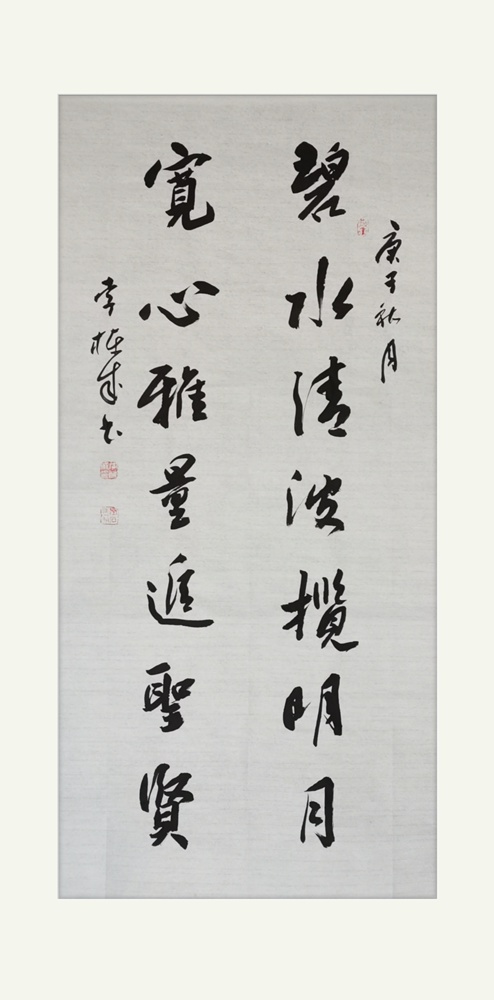 庚子秋月
碧水清波攬明月
寬心雅量進聖賢
李成书